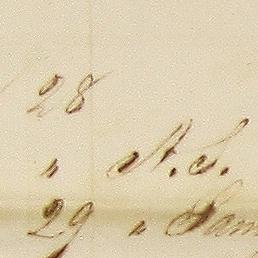 28
" N. S.
29 " Sam